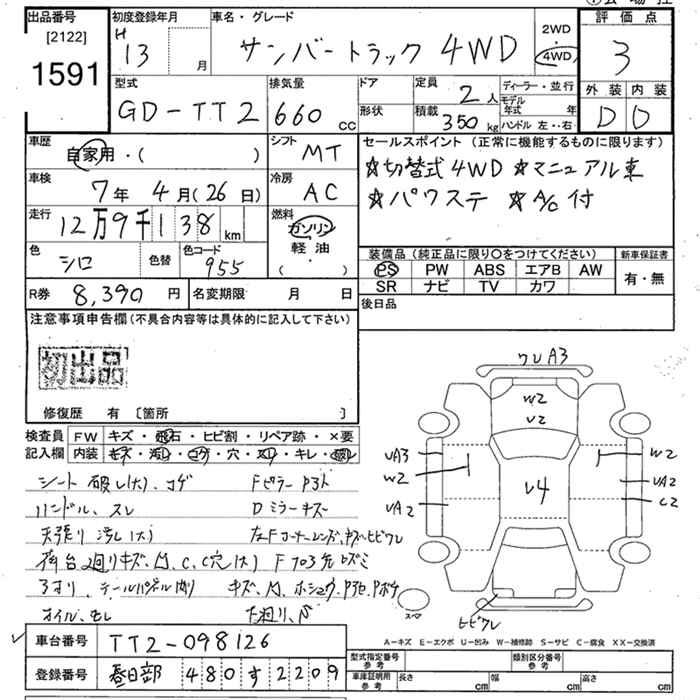 出品番号 [2122] 1591
初度登録年月 H 13 月
車名・グレード サンバートラック 4WD
2WD・4WD
評価点 3
外装 D 内装 D
型式 GD-TT2
排気量 660 cc
ドア
形状
定員 2人
積載 350 kg
ディーラー・並行
モデル年式 年
ハンドル 左・右
車歴 自家用・( )
シフト MT
セールスポイント (正常に機能するものに限ります)
☆切替式4WD ☆マニュアル車
☆パワステ ☆A/C付
車検 7年 4月(26日)
冷房 AC
走行 12万9千138 km
燃料 ガソリン 軽油 ( )
色 シロ 色替 色コード 955
装備品 (純正品に限り○をつけてください)
新車保証書 有・無
PS PW ABS エアB AW
SR ナビ TV カワ
R券 8,390 円 名変期限 月 日
後日品
注意事項申告欄 (不具合内容等は具体的に記入して下さい)
初出品
修復歴 有 〔箇所 〕
検査員記入欄
FW キズ・飛石・ヒビ割・リペア跡・×要
内装 キズ・汚レ・コゲ・穴・スレ・キレ・破レ
シート 破レ(大)、コゲ Fピラー P3ト
ハンドル、スレ Dミラーキズ
天張り 汚レ(大) 左Fコーナーレンズ、キズ・ヒビワレ
オイル、モレ
ワレA3
W2
V2
UA3
W2
UA2
V4
W2
UA2
C2
スペア
ヒビワレ
A－キズ E－エクボ U－凹み W－補修跡 S－サビ C－腐食 XX－交換済
車台番号 TT2-098126
登録番号 春日部 480す2209
型式指定番号 参考
類別区分番号 参考
車庫証明用 参考 長さ cm 幅 cm 高さ cm